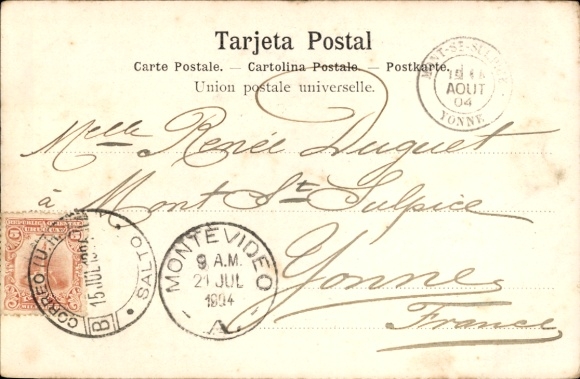 Tarjeta Postal
Carte Postale. — Cartolina Postale — Postkarte.
Union postale universelle.
MONT-ST-SULPICE
AOUT
04
YONNE
Melle Renée Duguet
à Mont St Sulpice
Yonne
France
CORREO
15 JUL
B
SALTO
MONTEVIDEO
9 A.M.
21 JUL
1904
A.